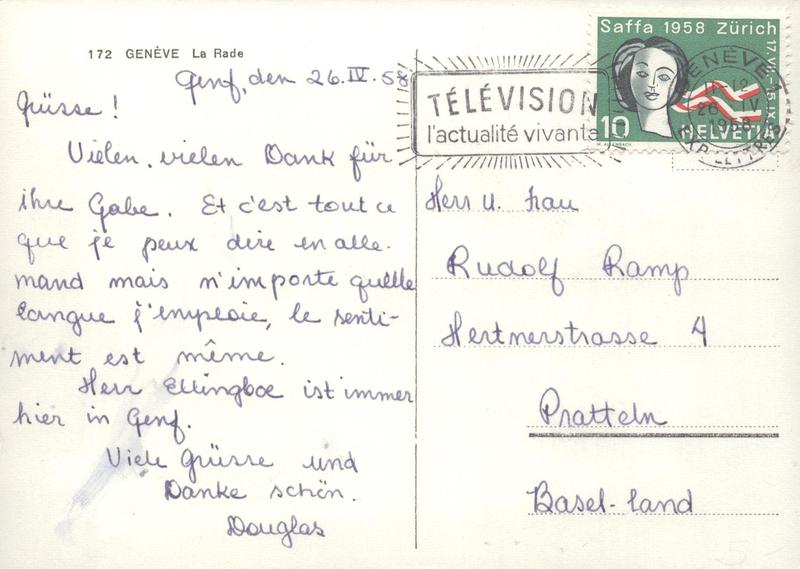 172 GENÈVE La Rade
Genf, den 26.IV.58
Grüsse !
Vielen, vielen Dank für
ihre Gabe. Et c'est tout ce
que je peux dire en alle-
mand mais n'importe quelle
langue j'emploie, le senti-
ment est même.
Herr Ellingboe ist immer
hier in Genf.
Viele Grüsse und
Danke schön.
Douglas
TÉLÉVISION
l'actualité vivante
Saffa 1958 Zürich
17. VII.-15. IX.
10 HELVETIA
M. ALLENBACH
GENÈVE 1
12
26 IV
1958
EXP. LETTRES
Herr u. Frau
Rudolf Ramp
Hertnerstrasse 4
Pratteln
Basel-land
5.-